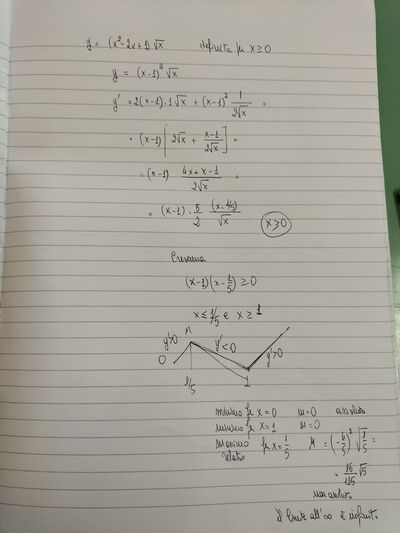 y = (x²-2x+1)√x definita per x≥0
y = (x-1)²√x
y' = 2(x-1)·1√x + (x-1)² 1/2√x =
= (x-1)[2√x + x-1/2√x] =
= (x-1) 4x+x-1/2√x =
= (x-1)·5/2 (x-1/5)/√x x≥0
Crescenza
(x-1)(x-1/5) ≥0
x≤1/5 e x≥1
M
y'>0 y'<0 y'>0
0
1/5 1
minimo per x=0 m=0 assoluto
minimo per x=1 m=0
massimo per x=1/5 M = (-4/5)²√1/5 =
relativo
= 16/125 √5
non assoluto
il limite all'∞ è infinito